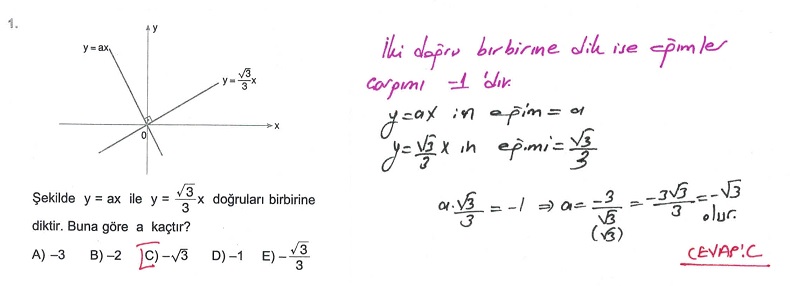 1.
y
y = ax
y = √3/3 x
x
0
Şekilde y = ax ile y = √3/3 x doğruları birbirine
diktir. Buna göre a kaçtır?
A) –3 B) –2 C) –√3 D) –1 E) –√3/3
İki doğru birbirine dik ise eğimler
çarpımı -1 'dir.
y=ax in eğim = a
y=√3/3 x in eğimi = √3/3
a.√3/3 = -1 ⇒ a = -3/√3 (√3) = -3√3/3 = -√3
olur.
CEVAP:C